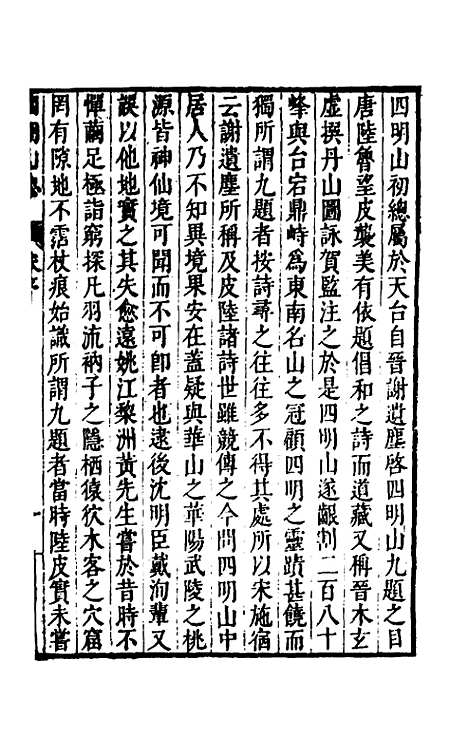 四明山初總屬於天台自晉謝遺塵啓四明山九題之目
唐陸魯望皮襲美有依題倡和之詩而道藏又稱晉木玄
虛撰丹山圖詠賀監注之於是四明山遂齦割二百八十
峰與台宕鼎峙爲東南名山之冠顧四明之靈蹟甚饒而
獨所謂九題者按詩尋之往往多不得其處所以宋施宿
云謝遺塵所稱及皮陸諸詩世雖競傳之今問四明山中
居人乃不知異境果安在蓋疑與華山之華陽武陵之桃
源皆神仙境可聞而不可卽者也逮後沈明臣戴洵輩又
誤以他地實之其失愈遠姚江黎洲黃先生嘗於昔時不
憚繭足極詣窮探凡羽流衲子之隱栖猿狖木客之穴窟
罔有隙地不霑杖痕始識所謂九題者當時陸皮實未嘗
四明山志